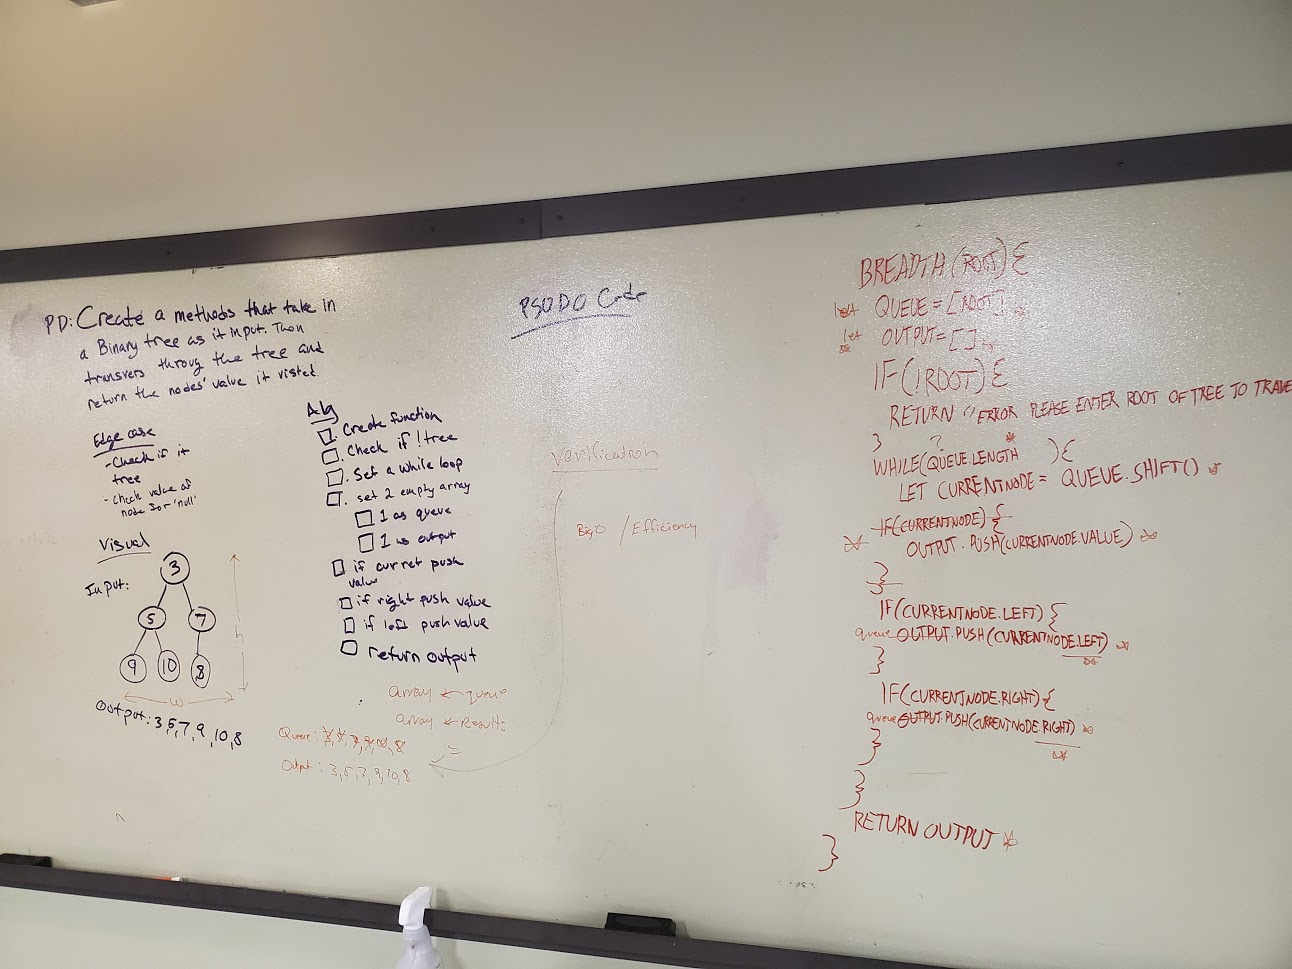 PD: Create a methods that take in
a Binary tree as it input. Then
transvers throug the tree and
return the nodes' value it visted
Edge case
- Check if it
tree
- Check value of
node for 'null'
Visual
Input:
3
5 7
9 10 8
h
w
Output: 3,5,7,9,10,8
Alg
Create function
Check if !tree
Set a while loop
set 2 empty array
1 as queue
1 as output
if curret push
value
if right push value
if left push value
return output
array ← queue
array ← Results
Queue: 3,5,7,9,10,8
Output: 3,5,7,9,10,8
PSUDO Code
Verification
Big O / Efficiency
BREADTH(ROOT){
let QUEUE = [ROOT]
let OUTPUT = []
IF(!ROOT){
RETURN "ERROR PLEASE ENTER ROOT OF TREE TO TRAVE
}
?
WHILE(QUEUE.LENGTH ){
LET CURRENTNODE = QUEUE.SHIFT()
IF(CURRENTNODE){
OUTPUT.PUSH(CURRENTNODE.VALUE)
}
IF(CURRENTNODE.LEFT){
queue OUTPUT.PUSH(CURRENTNODE.LEFT)
}
IF(CURRENTNODE.RIGHT){
queue OUTPUT.PUSH(CURRENTNODE.RIGHT)
}
}
RETURN OUTPUT
}